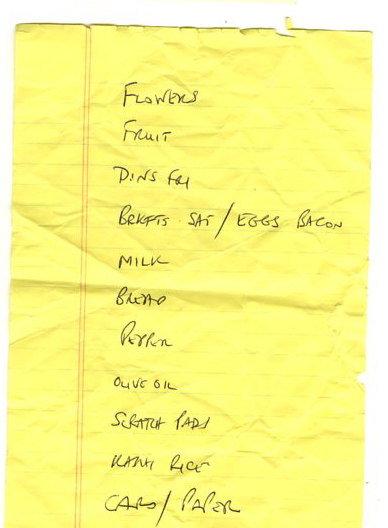 FLOWERS
FRUIT
DINS FRI
BRKFTS SAT / EGGS BACON
MILK
BREAD
PEPPER
OLIVE OIL
SCRATCH PADS
RICE
CARD / PAPER